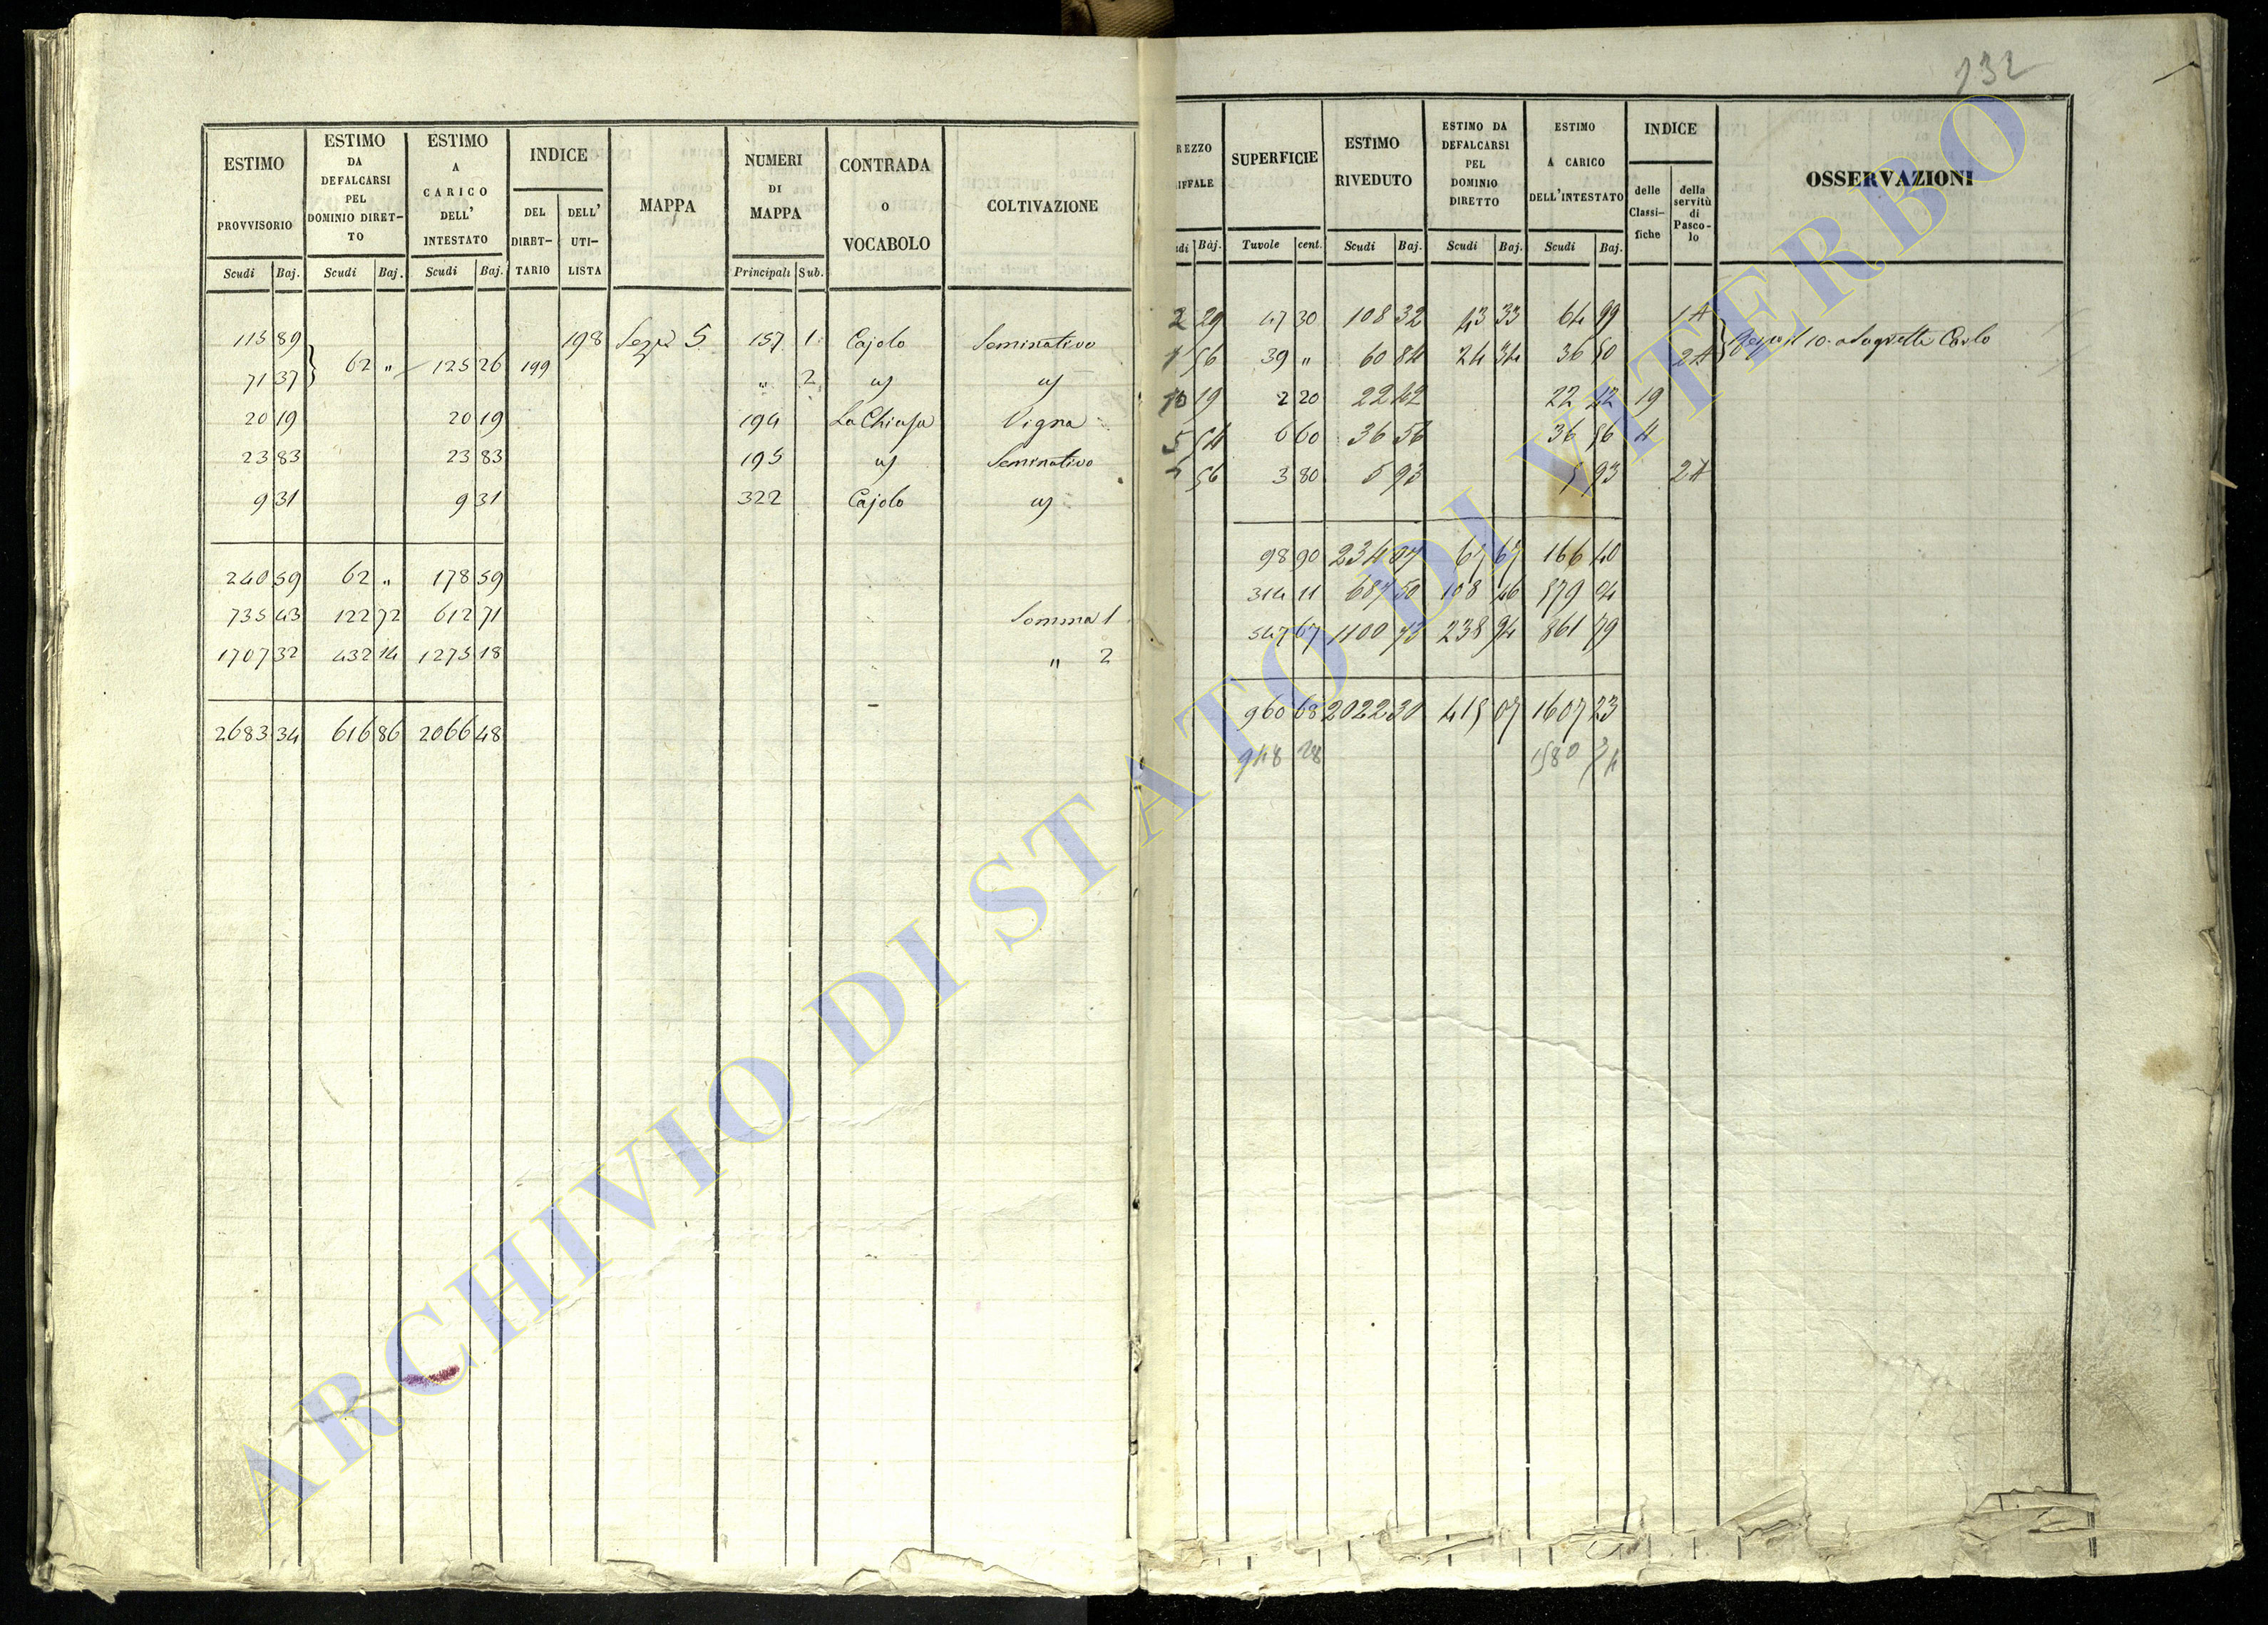 132
ESTIMO PROVVISORIO Scudi Baj.
ESTIMO DA DEFALCARSI PEL DOMINIO DIRET- TO Scudi Baj.
ESTIMO A CARICO DELL' INTESTATO Scudi Baj.
INDICE DEL DIRET- TARIO DELL' UTI- LISTA
MAPPA
NUMERI DI MAPPA Principali Sub.
CONTRADA O VOCABOLO
COLTIVAZIONE
115 89 198 5 157 1 Cajolo Seminativo
62 " 125 26 199
71 37 " 2
20 19 20 19 194 Vigna
23 83 23 83 195 Seminativo
9 31 9 31 322 Cajolo
240 59 62 " 178 59
735 43 122 72 612 71 Somma 1
1707 32 432 14 1275 18 " 2
2683 34 616 86 2066 48
REZZO IFFALE di Baj.
SUPERFICIE Tavole cent.
ESTIMO RIVEDUTO Scudi Baj.
ESTIMO DA DEFALCARSI PEL DOMINIO DIRETTO Scudi Baj.
ESTIMO A CARICO DELL'INTESTATO Scudi Baj.
INDICE delle Classi- fiche della servitù di Pasco- lo
OSSERVAZIONI
2 29 47 30 108 32 43 33 64 99 1A
56 39 " 60 84 24 34 36 50 2A Carlo
10 19 2 20 22 42 22 42 19
5 54 6 60 36 56 36 56 4
56 3 80 5 93 5 93 2A
98 90 234 07 67 67 166 40
314 11 687 50 108 46 579 04
547 67 1100 73 238 94 861 79
960 68 2022 30 415 07 1607 23
948 28 1580
ARCHIVIO DI STATO DI VITERBO